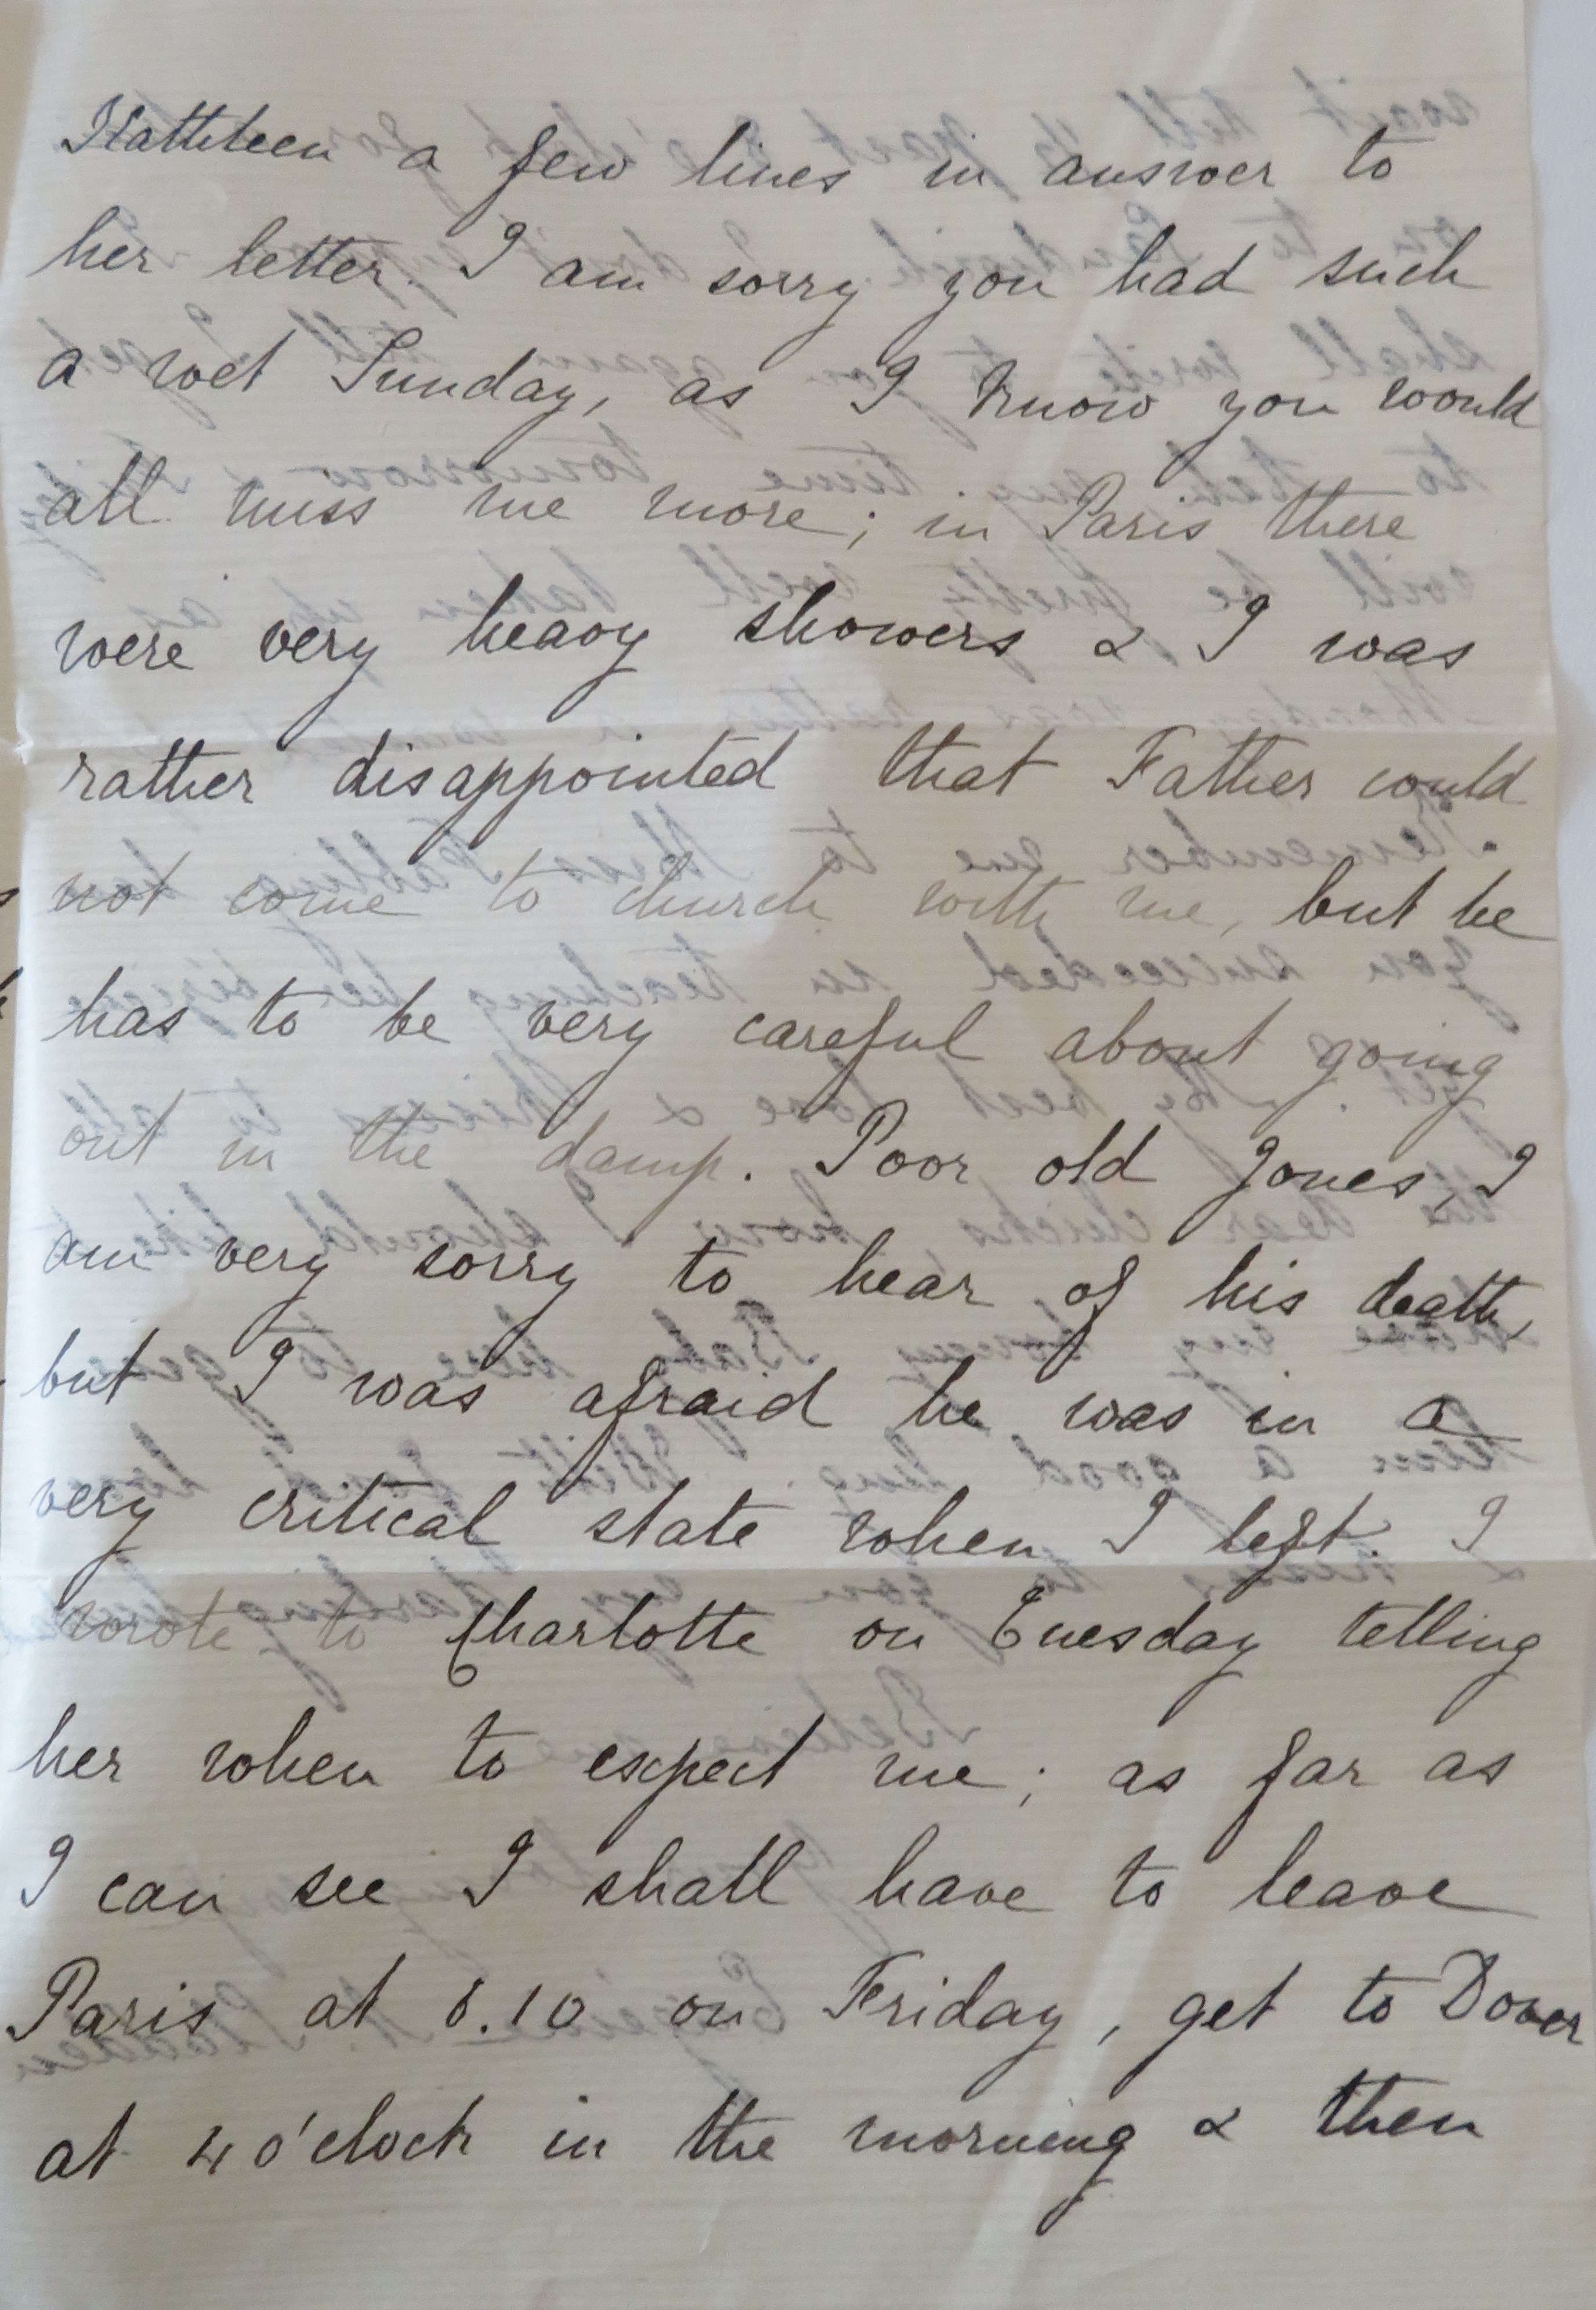 Kathleen a few lines in answer to
her letter. I am sorry you had such
a wet Sunday, as I know you would
all miss me more; in Paris there
were very heavy showers & I was
rather disappointed that Father could
not come to church with me, but he
has to be very careful about going
out in the damp. Poor old Jones, I
am very sorry to hear of his death,
but I was afraid he was in a
very critical state when I left. I
wrote to Charlotte on Tuesday telling
her when to expect me; as far as
I can see I shall have to leave
Paris at 8.10 on Friday, get to Dover
at 4 o'clock in the morning & then